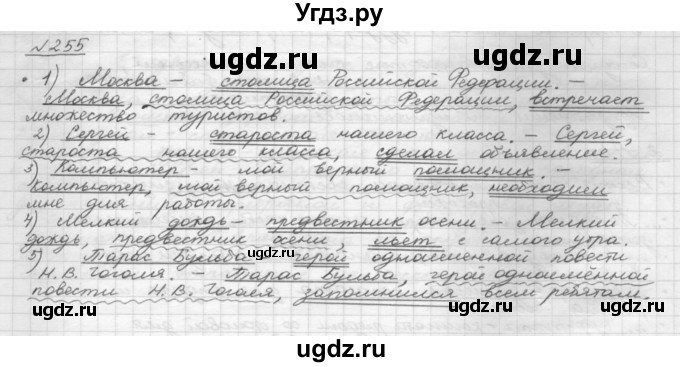 Угдз.ру
№255
ugdz.ru ugdz.ru
• 1) Москва – столица Российской Федерации. –
Москва, столица Российской Федерации, встречает
множество туристов.
2) Сергей – староста нашего класса. – Сергей,
староста нашего класса, сделал объявление.
3) Компьютер – мой верный помощник. –
Компьютер, мой верный помощник, необходим
мне для работы.
4) Мелкий дождь – предвестник осени. – Мелкий
дождь, предвестник осени, льёт с самого утра.
ugdz.ru ugdz.ru
5) Тарас Бульба – герой одноимённой повести
Н. В. Гоголя. – Тарас Бульба, герой одноимённой
повести Н. В. Гоголя, запомнился всем ребятам.
ugdz.ru
ugdz.ru